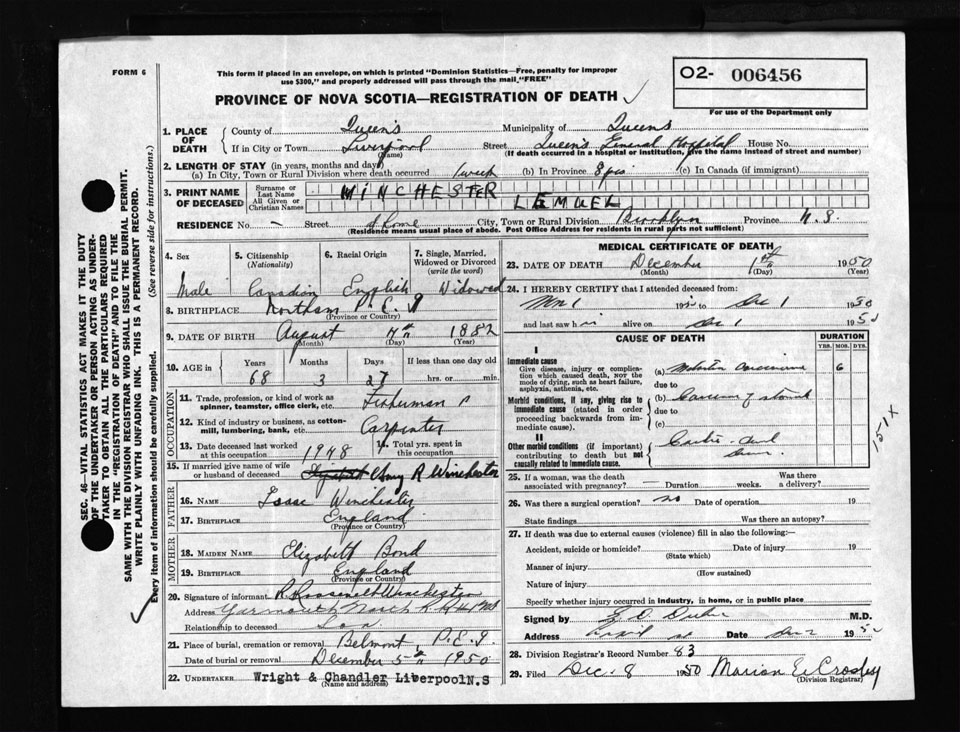 FORM 6
This form if placed in an envelope, on which is printed "Dominion Statistics—Free, penalty for improper
use $300," and properly addressed will pass through the mail, "FREE"
O2- 006456
For use of the Department only
PROVINCE OF NOVA SCOTIA—REGISTRATION OF DEATH
SEC. 46—VITAL STATISTICS ACT MAKES IT THE DUTY
OF THE UNDERTAKER OR PERSON ACTING AS UNDER-
TAKER TO OBTAIN ALL THE PARTICULARS REQUIRED
IN THE "REGISTRATION OF DEATH" AND TO FILE THE
SAME WITH THE DIVISION REGISTRAR WHO SHALL ISSUE THE BURIAL PERMIT.
WRITE PLAINLY WITH UNFADING INK. THIS IS A PERMANENT RECORD.
Every item of information should be carefully supplied. (See reverse side for instructions.)
1. PLACE OF DEATH County of Queen's Municipality of Queens
If in City or Town Liverpool (Name) Street Queen's General Hospital House No.
(If death occurred in a hospital or institution, give the name instead of street and number)
2. LENGTH OF STAY (in years, months and days)
(a) In City, Town or Rural Division where death occurred 1 week (b) In Province 8 yrs (c) In Canada (if immigrant)
3. PRINT NAME OF DECEASED Surname or Last Name WINCHESTER
All Given or Christian Names LEMUEL
RESIDENCE No. — Street City, Town or Rural Division Brooklyn Province N.S.
(Residence means usual place of abode. Post Office Address for residents in rural parts not sufficient)
4. Sex 5. Citizenship (Nationality) 6. Racial Origin 7. Single, Married, Widowed or Divorced (write the word)
Male Canadian English Widowed
8. BIRTHPLACE Northam P.E.I (Province or Country)
9. DATE OF BIRTH August (Month) 4th (Day) 1882 (Year)
10. AGE in Years Months Days If less than one day old
68 3 27 hrs. or min.
OCCUPATION
11. Trade, profession, or kind of work as spinner, teamster, office clerk, etc. Fisherman
12. Kind of industry or business, as cotton-mill, lumbering, bank, etc. Carpenter
13. Date deceased last worked at this occupation 1948 14. Total yrs. spent in this occupation
15. If married give name of wife or husband of deceased Elizabeth Amy R Winchester
FATHER
16. NAME Isaac Winchester
17. BIRTHPLACE England (Province or Country)
MOTHER
18. MAIDEN NAME Elizabeth Bond
19. BIRTHPLACE England (Province or Country)
20. Signature of informant R. Roosevelt Winchester
Address Yarmouth North
Relationship to deceased Son
21. Place of burial, cremation or removal Belmont, P.E.I
Date of burial or removal December 5th 1950
22. UNDERTAKER Wright & Chandler Liverpool N.S
(Name and address)
MEDICAL CERTIFICATE OF DEATH
23. DATE OF DEATH December (Month) 1st (Day) 1950 (Year)
24. I HEREBY CERTIFY that I attended deceased from:
195 to Dec 1 1950
and last saw him alive on Dec 1 1950
CAUSE OF DEATH DURATION
YRS. MOS. DYS.
I
Immediate cause
Give disease, injury or complication which caused death, NOT the mode of dying, such as heart failure, asphyxia, asthenia, etc.
(a) Carcinoma 6
due to
Morbid conditions, if any, giving rise to immediate cause (stated in order proceeding backwards from immediate cause).
(b) Carcinoma of stomach
due to
(c)
II
Other morbid conditions (if important) contributing to death but not causally related to immediate cause.
151X
25. If a woman, was the death associated with pregnancy? — Duration weeks. Was there a delivery?
26. Was there a surgical operation? no Date of operation 19
State findings Was there an autopsy?
27. If death was due to external causes (violence) fill in also the following:—
Accident, suicide or homicide? (State which) Date of injury 19
Manner of injury (How sustained)
Nature of injury
Specify whether injury occurred in industry, in home, or in public place
Signed by M.D.
Address Date Dec 2 1950
28. Division Registrar's Record Number 83
29. Filed Dec. 8 1950 Marion E. Crosby
(Division Registrar)